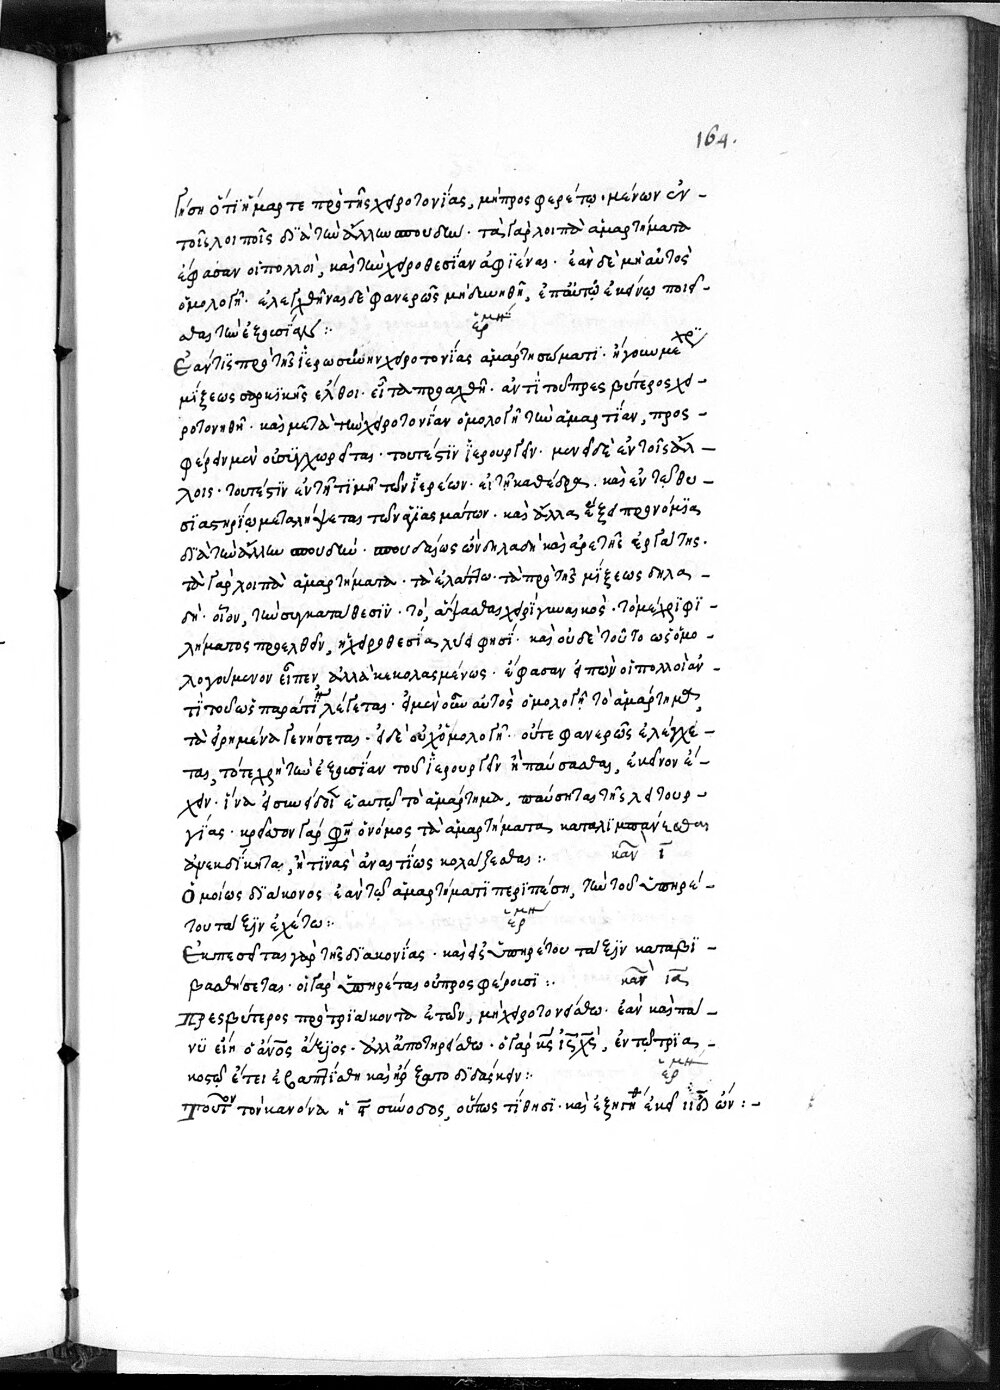 164.
γήση ὅτι ἥμαρτε πρὸ τῆς χειροτονίας, μὴ προσφερέτω· μένων ἐν
τοῖς λοιποῖς διὰ τὴν ἄλλην σπουδήν· τὰ γὰρ λοιπὰ ἁμαρτήματα
ἔφασαν οἱ πολλοί, καὶ τὴν χειροθεσίαν ἀφιέναι· ἐὰν δὲ μὴ αὐτὸς
ὁμολογῇ· ἐλεγχθῆναι δὲ φανερῶς μὴ δυνηθῇ, ἐπ' αὐτῷ ἐκείνῳ ποιεῖ
σθαι τὴν ἐξουσίαν :· ἑρμη
Ἐάν τις πρὸ τῆς ἱερωσύνην χειροτονίας ἁμαρτήσῃ σώματι· ἤγουν μέχρι
μίξεως σαρκικῆς ἔλθοι· εἶτα προαχθῇ· ἀντὶ τοῦ πρεσβύτερος χει
ροτονηθῇ· καὶ μετὰ τὴν χειροτονίαν ὁμολογῇ τὴν ἁμαρτίαν, προσ
φέρειν μὲν οὐ συγχωρεῖται· τουτέστιν ἱερουργεῖν· μένει δὲ ἐν τοῖς ἄλ
λοις· τουτέστιν ἐν τῇ τιμῇ τῶν ἱερέων· ἐν τῇ καθέδρᾳ· καὶ ἐν τῷ θυ
σιαστηρίῳ μεταλήψεται τῶν ἁγιασμάτων· καὶ ἄλλα ἕξει προνόμια
διὰ τὴν ἄλλην σπουδήν· σπουδαίως ὢν δηλαδὴ καὶ ἀρετῆς ἐργάτης·
τὰ γὰρ λοιπὰ ἁμαρτήματα· τὰ ἐλάττω· τὰ πρὸ τῆς μίξεως δηλα
δή· οἷον, τὴν συγκατάθεσιν· τὸ, ἅψασθαι χειρὶ γυναικός· τὸ μέχρι φι
λήματος προελθεῖν, ἡ χειροθεσία λύει φησί· καὶ οὐδὲ τοῦτο ὡς ὁμο
λογούμενον εἶπεν, ἀλλὰ κεκολασμένως· ἔφασαν εἰπὼν οἱ πολλοὶ ἀν
τὶ τοῦ ὡς παρά τισι λέγεται· εἰ μὲν οὖν αὐτὸς ὁμολογῇ τὸ ἁμάρτημα,
τὰ εἰρημένα γενήσεται· εἰ δὲ οὐχ ὁμολογῇ· οὔτε φανερῶς ἐλέγχε
ται, τότε χρὴ τὴν ἐξουσίαν τοῦ ἱερουργεῖν ἢ παύσασθαι, ἐκεῖνον ἔ
χειν· ἵνα εἰ συνείδοι ἑαυτῷ τὸ ἁμάρτημα, παύσηται τῆς λειτουρ
γίας· κρεῖττον γάρ φησὶν ὁ νόμος τὰ ἁμαρτήματα καταλιμπάνεσθαι
ἀνεκδίκητα, ἤ τινας ἀναιτίως κολάζεσθαι :· κανὼν ι
Ὁμοίως διάκονος ἐὰν τῷ ἁμαρτήματι περιπέσῃ, τὴν τοῦ ὑπηρέ
του τάξιν ἐχέτω :· ἑρμη
Ἐκπεσεῖται γὰρ τῆς διακονίας· καὶ εἰς ὑπηρέτου τάξιν καταβι
βασθήσεται· οἱ γὰρ ὑπηρέται οὐ προσφέρουσι :· κανὼν ια
Πρεσβύτερος πρὸ τριάκοντα ἐτῶν, μὴ χειροτονείσθω· ἐὰν καὶ πά
νυ εἴη ὁ ἄνος ἄξιος· ἀλλ' ἀποτηρείσθω· ὁ γὰρ κς ις χς, ἐν τῷ τρια
κοστῷ ἔτει ἐβαπτίσθη καὶ ἤρξατο διδάσκειν :· ἑρμη
Τοῦτον τὸν κανόνα ἡ σύνοδος, οὕτως τίθησι· καὶ ἐξηγήθη